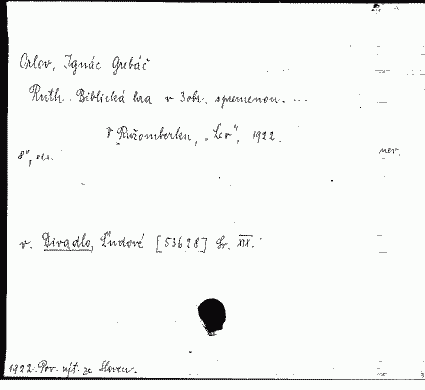 Orlov, Ignác Grebáč
Ruth. Biblická hra v 3 obr. spremenou. ...
V Ružomberku, „Lev", 1922.
8°, str.
nov.
v. Divadlo, Ľudové [53628] Sv. XIX.
1922. Pov. výt. ze Sloven.